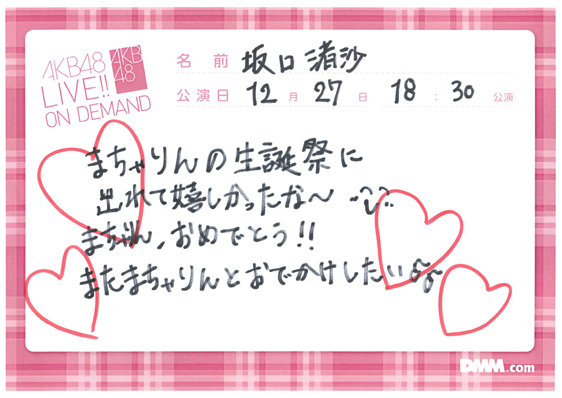 AKB48
LIVE!!
ON DEMAND
AKB
48
名前 坂口渚沙
公演日 12月27日 18:30公演
まちゃりんの生誕祭に
出れて嬉しかったな〜
まちゃりん、おめでとう!!
またまちゃりんとおでかけしたい
DMM.com